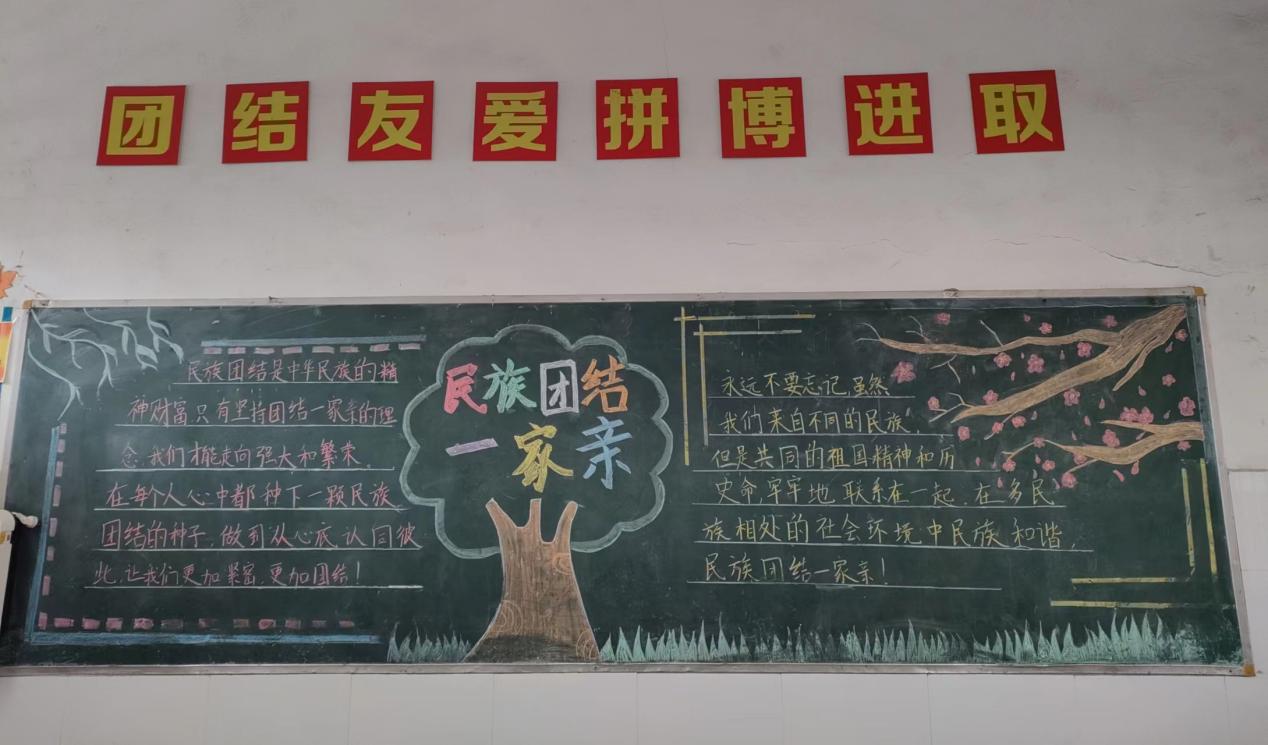 团结友爱拼博进取
民族团结
一家亲
民族团结是中华民族的精
神财富只有坚持团结一家亲的理
念,我们才能走向强大和繁荣。
在每个人心中都种下一颗民族
团结的种子,做到从心底认同彼
此,让我们更加紧密,更加团结!
永远不要忘记,虽然
我们来自不同的民族,
但是共同的祖国精神和历
史命,牢牢地联系在一起,在多民
族相处的社会环境中民族和谐,
民族团结一家亲!